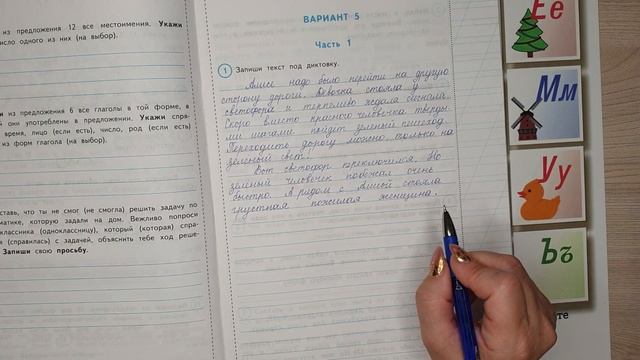 из предложения 12 все местоимения. Укажи
число одного из них (на выбор).
из предложения 6 все глаголы в той форме, в
они употреблены в предложении. Укажи
время, лицо (если есть), число, род (если есть)
из форм глагола (на выбор).
ставь, что ты не смог (не смогла) решить задачу по
матике, которую задали на дом. Вежливо попроси
классника (одноклассницу), который (которая)
(справилась) с задачей, объяснить тебе ход
Запиши свою просьбу.
ВАРИАНТ 5
Часть 1
1 Запиши текст под диктовку.
Алисе надо было перейти на другую
сторону дороги. Девочка стояла у
светофора и терпеливо ждала сигнала.
Скоро вместо красного человечка тверды-
ми шагами пойдёт зелёный пешеход.
Переходить дорогу можно только на
зелёный свет!
Вот светофор переключился. Но
зелёный человечек побежал очень
быстро. А рядом с Алисой стояла
грустная пожилая женщина.
Ее
Мм
Уу
Ъъ